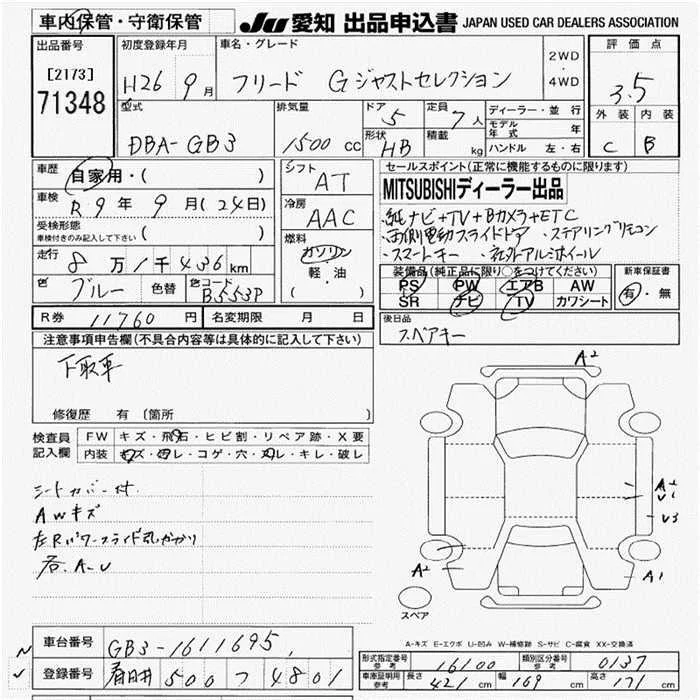 車内保管・守衛保管 JU 愛知 出品申込書 JAPAN USED CAR DEALERS ASSOCIATION
出品番号 初度登録年月 車名・グレード 2WD・4WD 評価点
[2173] H26 9月 フリード Gジャストセレクション 3.5
71348 型式 排気量 ドア 5 定員 7人 ディーラー・並行 外装 内装
モデル年式 年
DBA-GB3 1500cc 形状 HB 積載 kg ハンドル 左・右 C B
車歴 自家用・( ) シフト AT セールスポイント(正常に機能するものに限ります)
MITSUBISHIディーラー出品
車検 R9年 9月(24日) 冷房 AAC ・純ナビ+TV+Bカメラ+ETC
受検形態 車検付きのみ記入して下さい ( ) 燃料 ガソリン ・両側電動スライドドア ・ステアリングリモコン
走行 8万1千436km 軽・油 ・スマートキー ・社外アルミホイール
色 ブルー 色替 色コード B553P ( ) 装備品(純正品に限り○をつけてください) 新車保証書
PS PW エアB AW 有・無
SR ナビ TV カワシート
R券 11760円 名変期限 月 日 後日品
スペアキー
注意事項申告欄(不具合内容等は具体的に記入して下さい)
下取車
修復歴 有〔箇所 〕
検査員記入欄 FW キズ・飛石・ヒビ割・リペア跡・X要
内装 キズ・汚レ・コゲ・穴・スレ・キレ・破レ
シートカバー付
AWキズ
左Rパワースライド乱かかり
A2
A2
V3
A2 A1
スペア
A-キズ E-エクボ U-凹み W-補修跡 S-サビ C-腐食 XX-交換済
車台番号 GB3-1611695
形式指定番号 参考 16100 類別区分番号 参考 0137
登録番号 春日井 500 フ 4801
車庫証明用 参考 長さ 421cm 幅 169cm 高さ 171cm